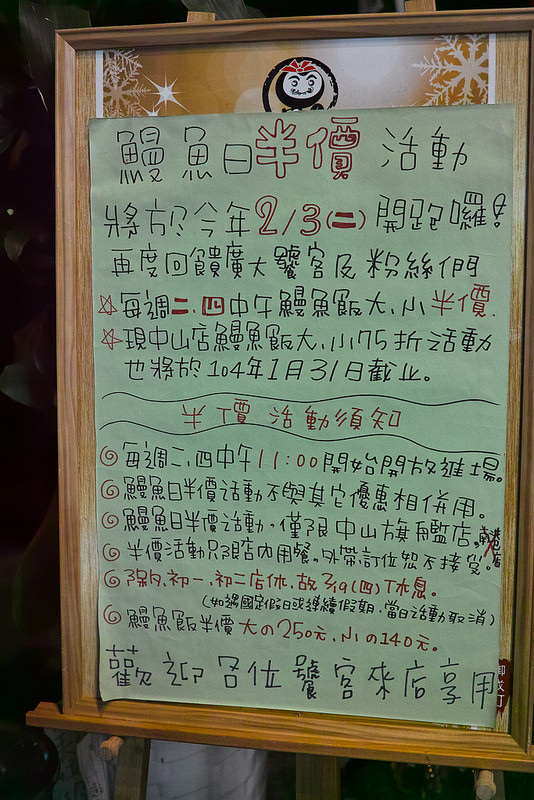 鰻魚日半價活動
將於今年2/3(二)開跑囉!
再度回饋廣大饕客及粉絲們
☆每週二、四中午鰻魚飯大、小半價.
☆現中山店鰻魚飯大、小75折活動
也將於104年1月31日截止。
半價活動須知
每週二、四中午11:00開始開放進場。
鰻魚日半價活動不與其它優惠相併用。
鰻魚日半價活動,僅限中山旗艦店。南港店
半價活動只限店內用餐。外帶、訂位恕不接受。
除夕、初一、初二店休,故2/19(四)下休息。
(如遇國定假日或連續假期,當日活動取消)
鰻魚飯半價大の250元、小の140元。
歡迎各位饕客來店享用